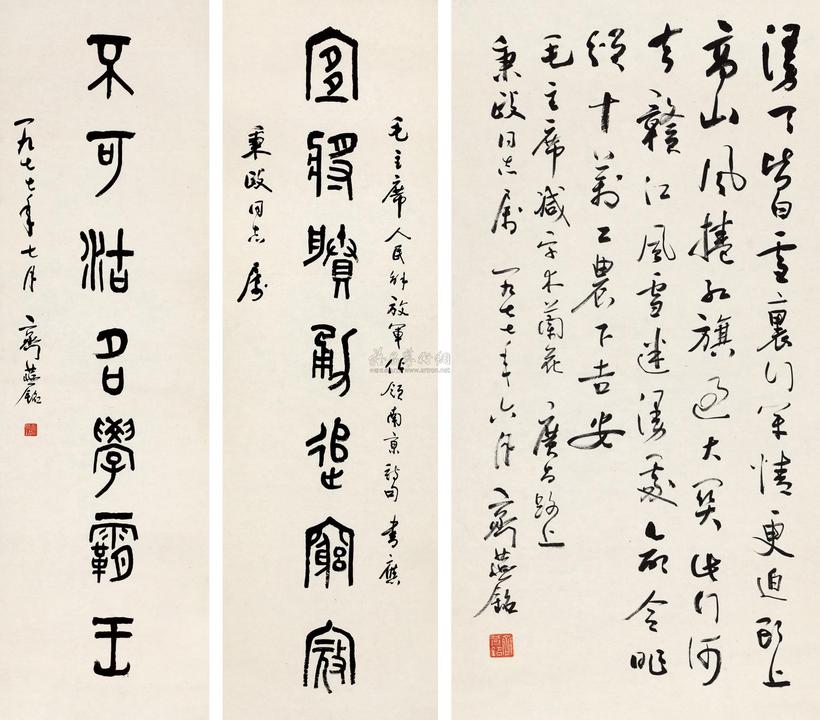 漫天皆白雪裏行軍情更迫頭上
高山風捲紅旗過大關此行何
去贛江風雪迷漫處命令昨
頒十萬工農下吉安
毛主席減字木蘭花 廣昌路上
秉同志屬 一九七七年六月 齊燕銘
毛主席人民解放軍佔領南京詩句 書應
宜將賸勇追窮寇
秉同志屬
不可沽名學霸王
一九七七年七月 齊燕銘
雅昌藝術網
www.artron.net